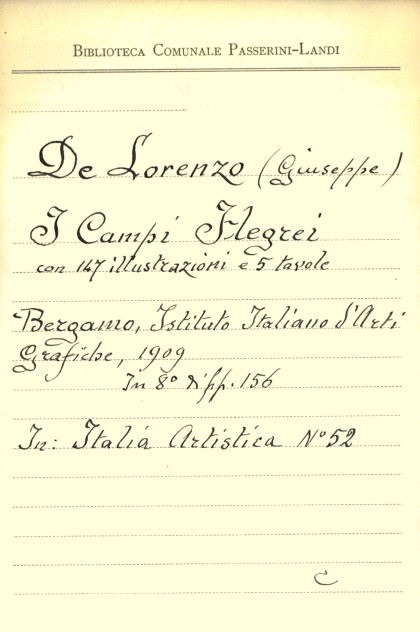 Biblioteca Comunale Passerini-Landi
De Lorenzo (Giuseppe)
I Campi Flegrei
con 147 illustrazioni e 5 tavole
Bergamo, Istituto Italiano d'Arti
Grafiche, 1909
In 8° di pp. 156
In: Italia Artistica N° 52
C